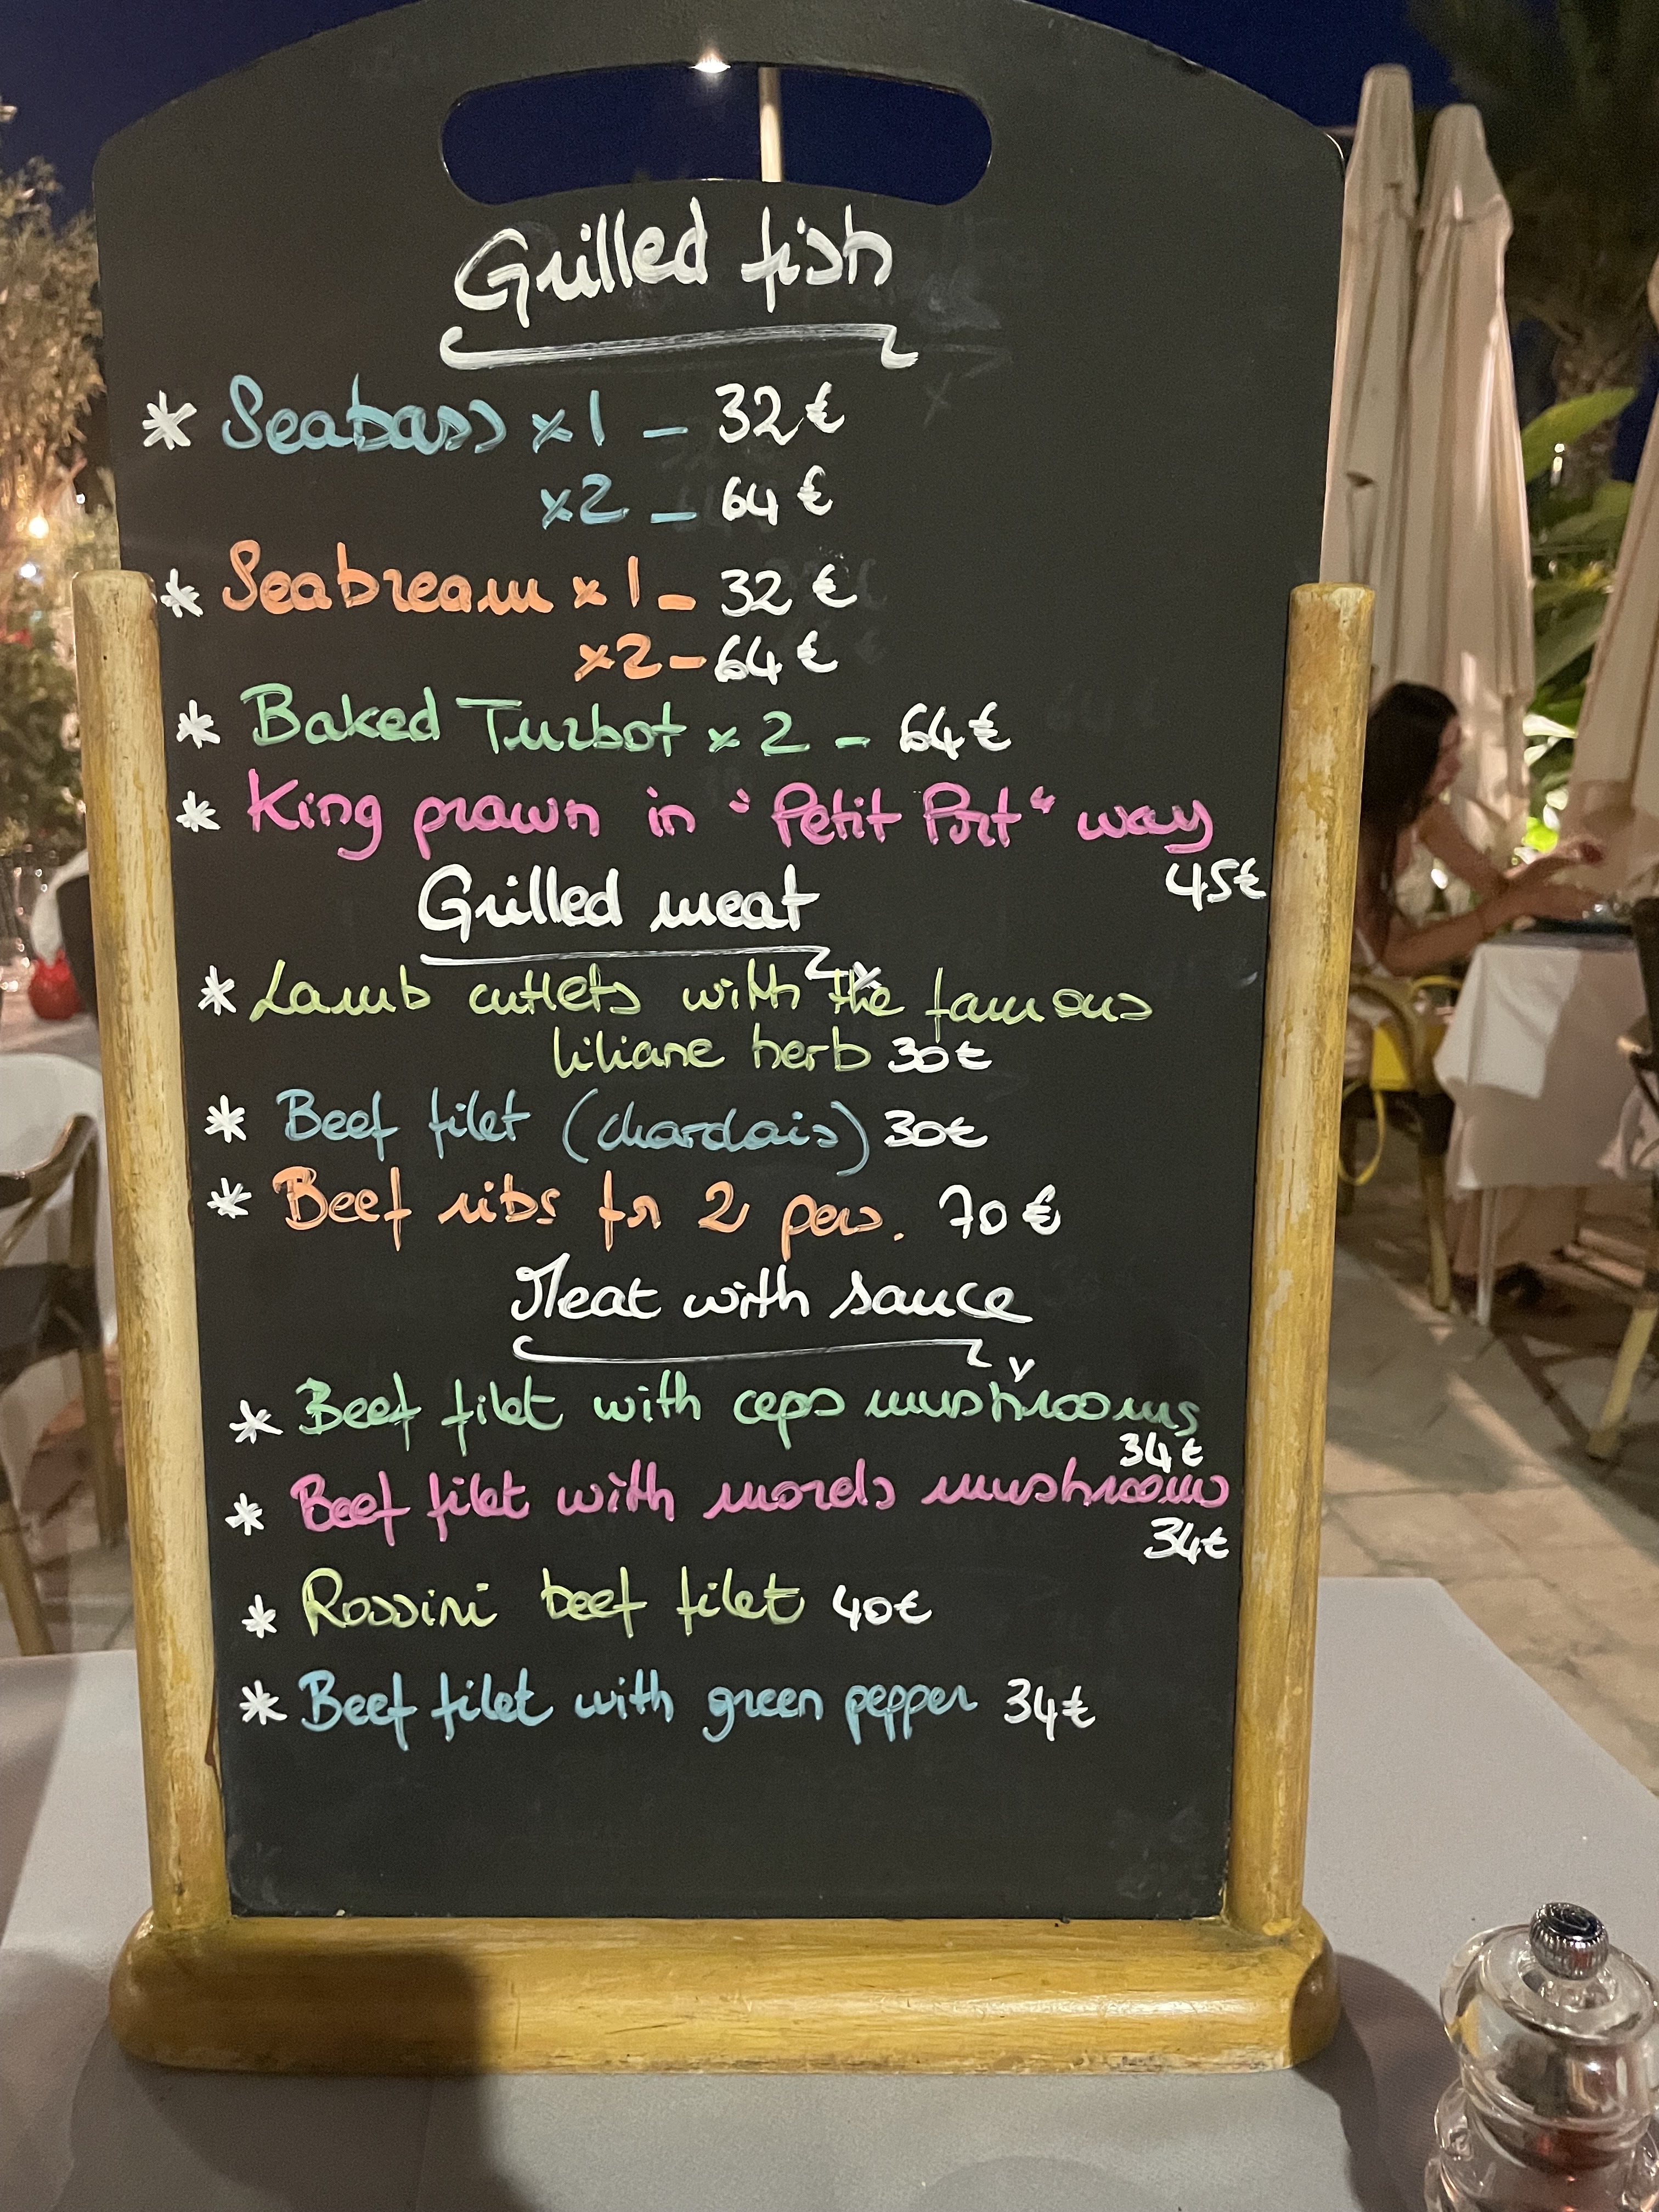 Grilled fish
* Seabass x1 - 32€
x2 - 64€
* Seabream x1 - 32€
x2 - 64€
* Baked Turbot x2 - 64€
* King prawn in "Petit Port" way
45€
Grilled meat
* Lamb cutlets with the famous
liliane herb 30€
* Beef filet (chardais) 30€
* Beef ribs for 2 pers. 70€
Meat with sauce
* Beef filet with ceps mushrooms
34€
* Beef filet with morels mushrooms
34€
* Rossini beef filet 40€
* Beef filet with green pepper 34€